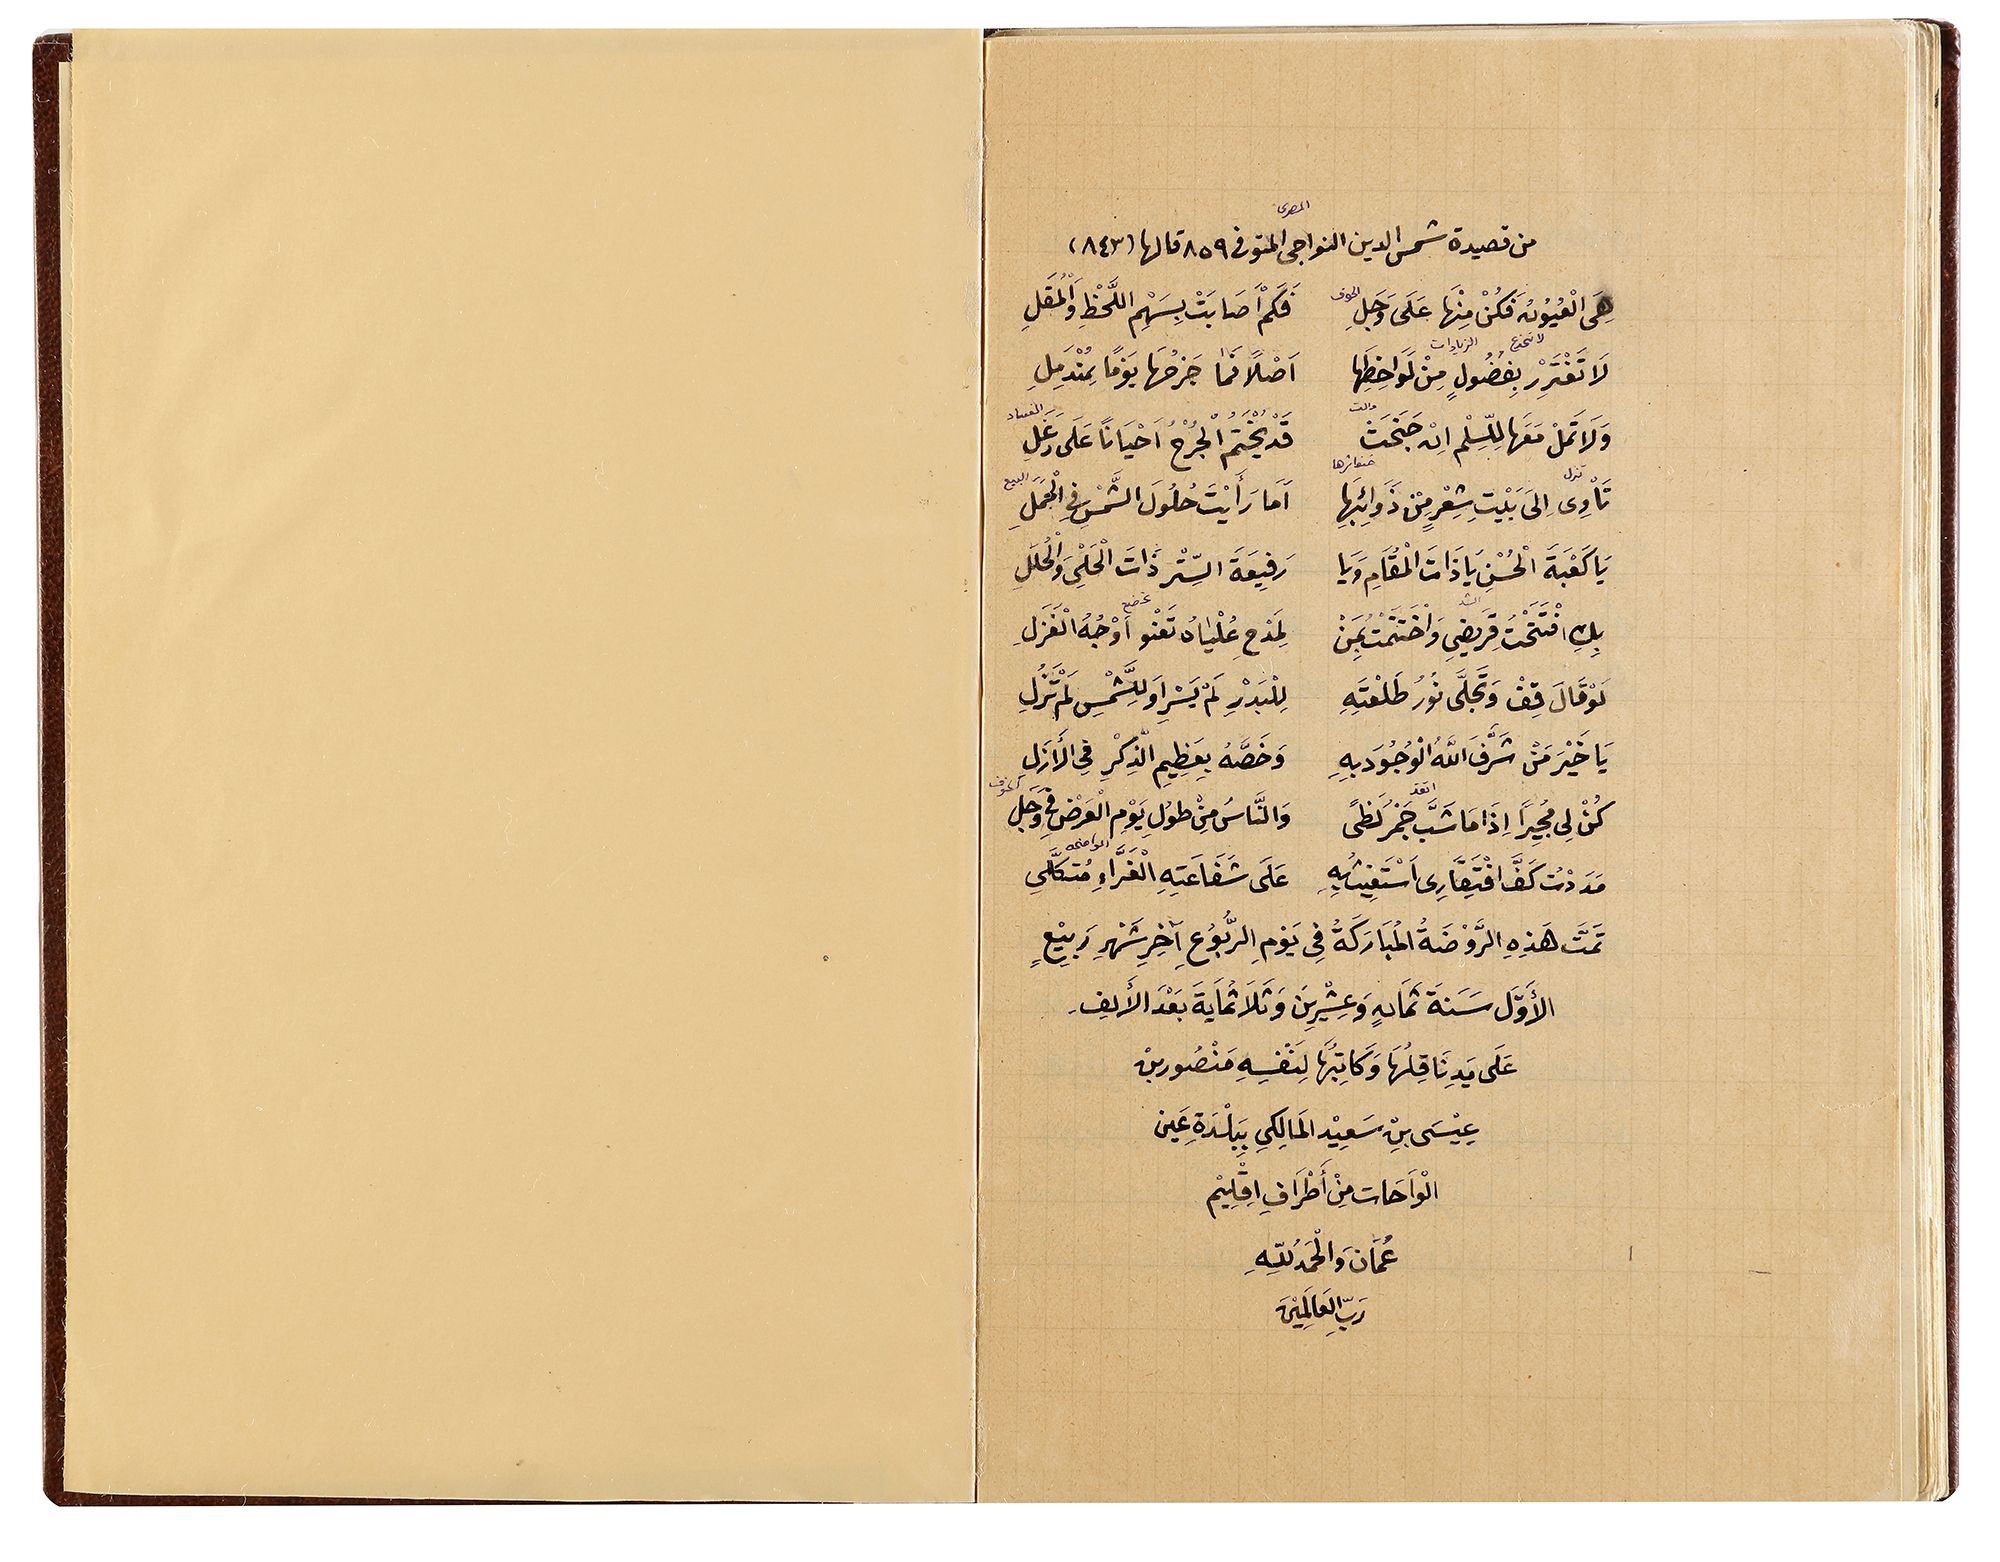 المصرى
من قصيدة شمس الدين النواجى المتوفى ٨٥٩ قالها (٨٤٣)
هِىَ الْعُيُونُ فَكُنْ مِنْهَا عَلَى وَجَلِ فَكَمْ أَصَابَتْ بِسَهْمِ اللَّحْظِ وَالْمُقَلِ
الخوف
لَا تَغْتَرِرْ بِفُضُولٍ مِنْ لَوَاحِظِهَا اَصْلًا فَمَا جَرْحُهَا يَوْمًا بِمُنْدَمِلِ
لا تنخدع الزيادات
وَلَا تَمِلْ مَعَهَا لِلسِّلْمِ اِنْ جَنَحَتْ قَدْ يُخْتَمُ الْجُرْحُ اَحْيَانًا عَلَى دَغَلِ
مالت الفساد
تَأْوِى اِلَى بَيْتِ شِعْرٍ مِنْ ذَوَائِبِهَا اَمَا رَأَيْتَ حُلُولَ الشَّمْسِ فِي الْحَمَلِ
تنزل ضفائرها
يَا كَعْبَةَ الْحُسْنِ يَا ذَاتَ الْمَقَامِ وَيَا رَفِيعَةَ السِّتْرِ ذَاتَ الْحَلْيِ وَالْحُلَلِ
بِكِ افْتَتَحْتُ قَرِيضِي وَاخْتَتَمْتُ بِمَنْ لِمَدْحِ عُلْيَاهُ تَعْنُو اَوْجُهُ الْغَزَلِ
تخضع
لَوْ قَالَ قِفْ وَتَجَلَّى نُورُ طَلْعَتِهِ لِلْبَدْرِ لَمْ يَسْرِ اَوْ لِلشَّمْسِ لَمْ تَزُلِ
يَا خَيْرَ مَنْ شَرَّفَ اللَّهُ الْوُجُودَ بِهِ وَخَصَّهُ بِعَظِيمِ الذِّكْرِ فِي الْأَزَلِ
كُنْ لِي مُجِيرًا اِذَا مَا شَبَّ جَمْرُ لَظًى وَالنَّاسُ مِنْ طُولِ يَوْمِ الْعَرْضِ فِي وَجَلِ
اتقد الخوف
مَدَدْتُ كَفَّ افْتِقَارِى اَسْتَغِيثُ بِهِ عَلَى شَفَاعَتِهِ الْغَرَّاءِ مُتَّكَلِي
الواضحه
تَمَّتْ هَذِهِ الرَّوْضَةُ الْمُبَارَكَةُ فِي يَوْمِ الرَّبُوعِ آخِرِ شَهْرِ رَبِيْعٍ
الْأَوَّلِ سَنَةَ ثَمَانٍ وَعِشْرِينَ وَثَلَاثُمَايَةَ بَعْدَ الْأَلِفِ
عَلَى يَدِ نَاقِلِهَا وَكَاتِبُهَا لِنَفْسِهِ مَنْصُور بِنْ
عِيْسَى بِنْ سَعِيْد الْمَالِكِي بِبَلْدَةِ عَيْن
الْوَاحَات مِنْ أَطْرَافِ اِقْلِيْم
عُمَان وَالْحَمْدُ لِلَّهِ
رَبِّ الْعَالَمِيْنَ